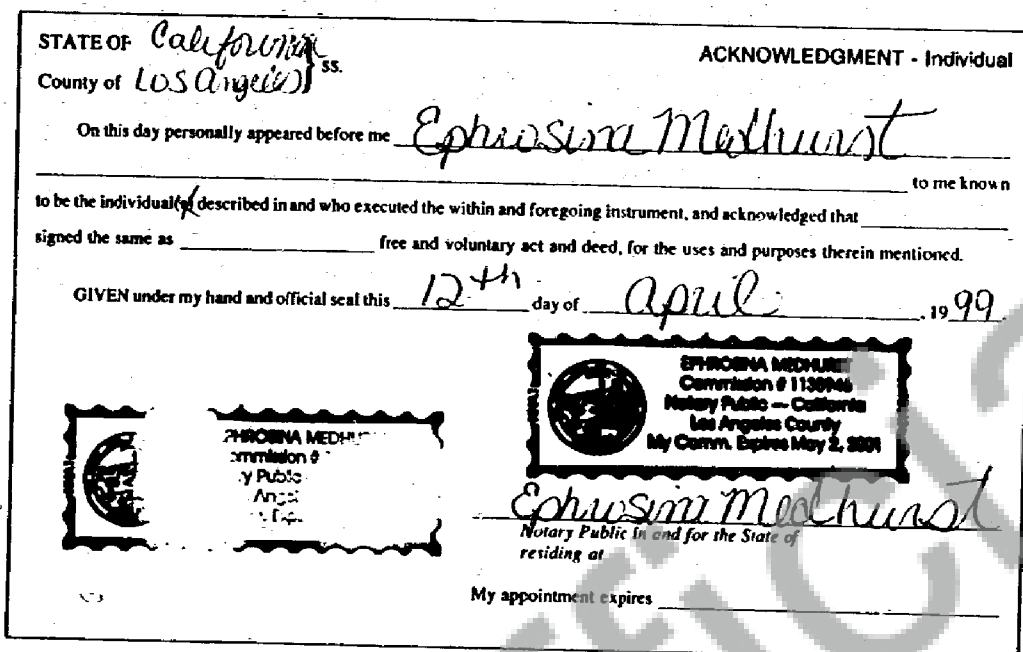 STATE OF California
ACKNOWLEDGMENT - Individual
County of Los Angeles } ss.
On this day personally appeared before me Ephrosina Medhurst
to me known
to be the individual(s) described in and who executed the within and foregoing instrument, and acknowledged that
signed the same as free and voluntary act and deed, for the uses and purposes therein mentioned.
GIVEN under my hand and official seal this 12th day of April, 1999.
EPHROSINA MEDHURST
Commission #
Notary Public — California
Los Angeles County
My Comm. Expires May 2, 2001
PHROSINA MEDHU
ommission #
y Public
Angel
Ephrosina Medhurst
Notary Public in and for the State of
residing at
My appointment expires